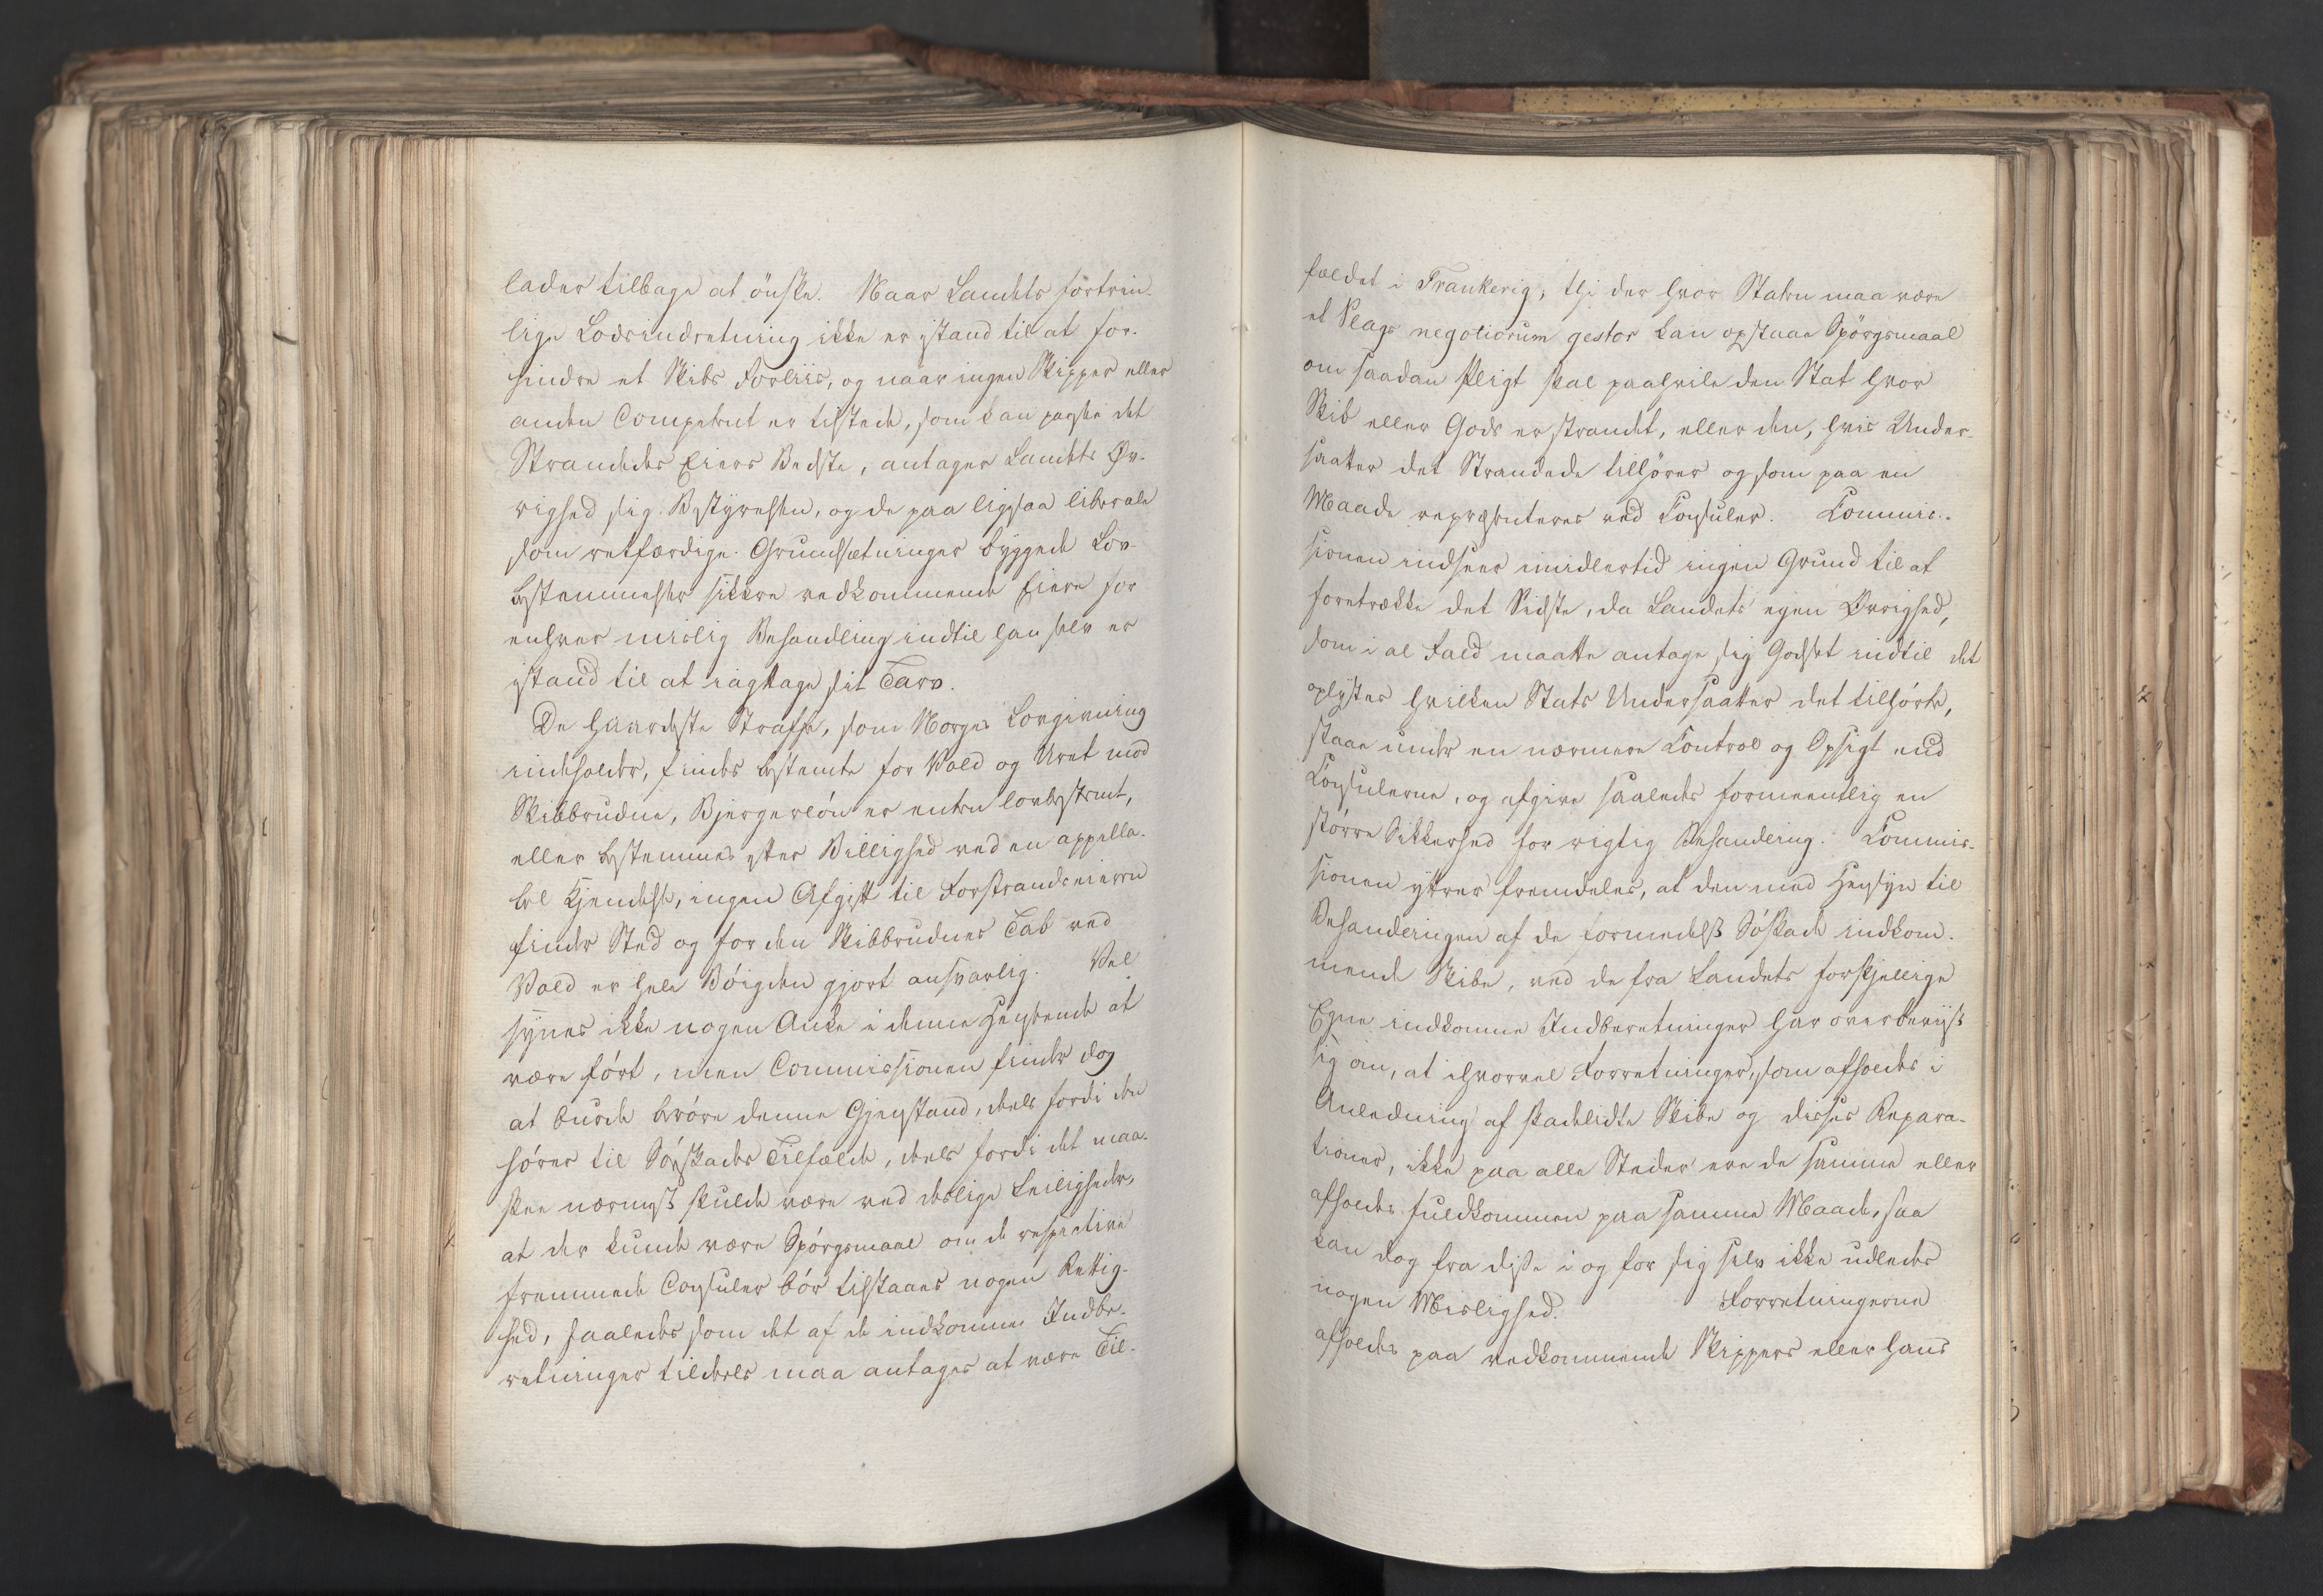 lader tilbage at önske. Naar Landets fortrin-
lige Lodsindretning ikke er istand til at for-
hindre et Skibs Forliis, og naar ingen Skipper eller
anden Competent er tilstede, som kan paasee det
Strandedes Eiers Bedste, antager Landets Øv-
righed sig Bestyrelsen, og de paa ligesaa liberale
som retfærdige Grundsætninger byggede Lov-
bestemmelser sikkre vedkommende Eiere for
enhver mislig Behandling indtil han selv er
istand til at iagttage sit Tarv.
De haardeste Straffe, som Norges Lovgivning
indeholder, findes bestemte for Vold og Uret mod
Skibbrudne, Bjergerlön er enten lovbestemt,
eller bestemmes efter Billighed ved en appella-
bel Kjendelse, ingen Afgift til Forstrandseieren
finder Sted og for den Skibbrudnes Tab ved
Vold er hele Böigden gjort ansvarlig. Vel
synes ikke nogen Anke i denne Henseende at
være fört, men Commissionen finder dog
at burde beröre denne Gjenstand, deels fordi den
hörer til Söeskades Tilfælde, deels fordi det maa-
skee nærmest skulde være ved deslige Leiligheder,
at der kunde være Spörgsmaal om de respective
fremmede Consuler bör tilstaaes nogen Rettig-
hed, saaledes som det af de indkomne Indbe-
retninger tildeels maa antages at være Til-
fældet i Frankerig; thi der hvor Staten maa være
et Slags negotiorum gestor kan opstaae Spörgsmaal
om saadan Pligt skal paahvile den Stat hvor
Skib eller Gods er strandet, eller den, hvis Under-
saatter det Strandede tilhörer og som paa en
Maade repræsenteres ved Consuler. Commis-
sionen indseer imidlertid ingen Grund til at
foretrække det Sidste, da Landets egen Øvrighed,
som i al Fald maatte antage sig Godset indtil det
oplystes hvilken Stats Undersaatter det tilhörte,
staae under en nærmere Control og Opsigt end
Consulerne, og afgive saaledes formeentlig en
större Sikkerhed for rigtig Behandling. Commis-
sionen yttrer fremdeles, at den med Hensyn til
Behandlingen af de formedelst Söskade indkom-
mende Skibe, ved de fra Landets forskjellige
Egne indkomne Indberetninger har overbeviist
sig om, at ihvorvel Forretninger, som afholdes i
Anledning af skadelidte Skibe og disses Repara-
tioner, ikke paa alle Steder ere de samme eller
afholdes fuldkommen paa samme Maade, saa
kan dog fra disse i og for sig selv ikke udledes
nogen Mislighed. Forretningerne
afholdes paa vedkommende Skippers eller hans